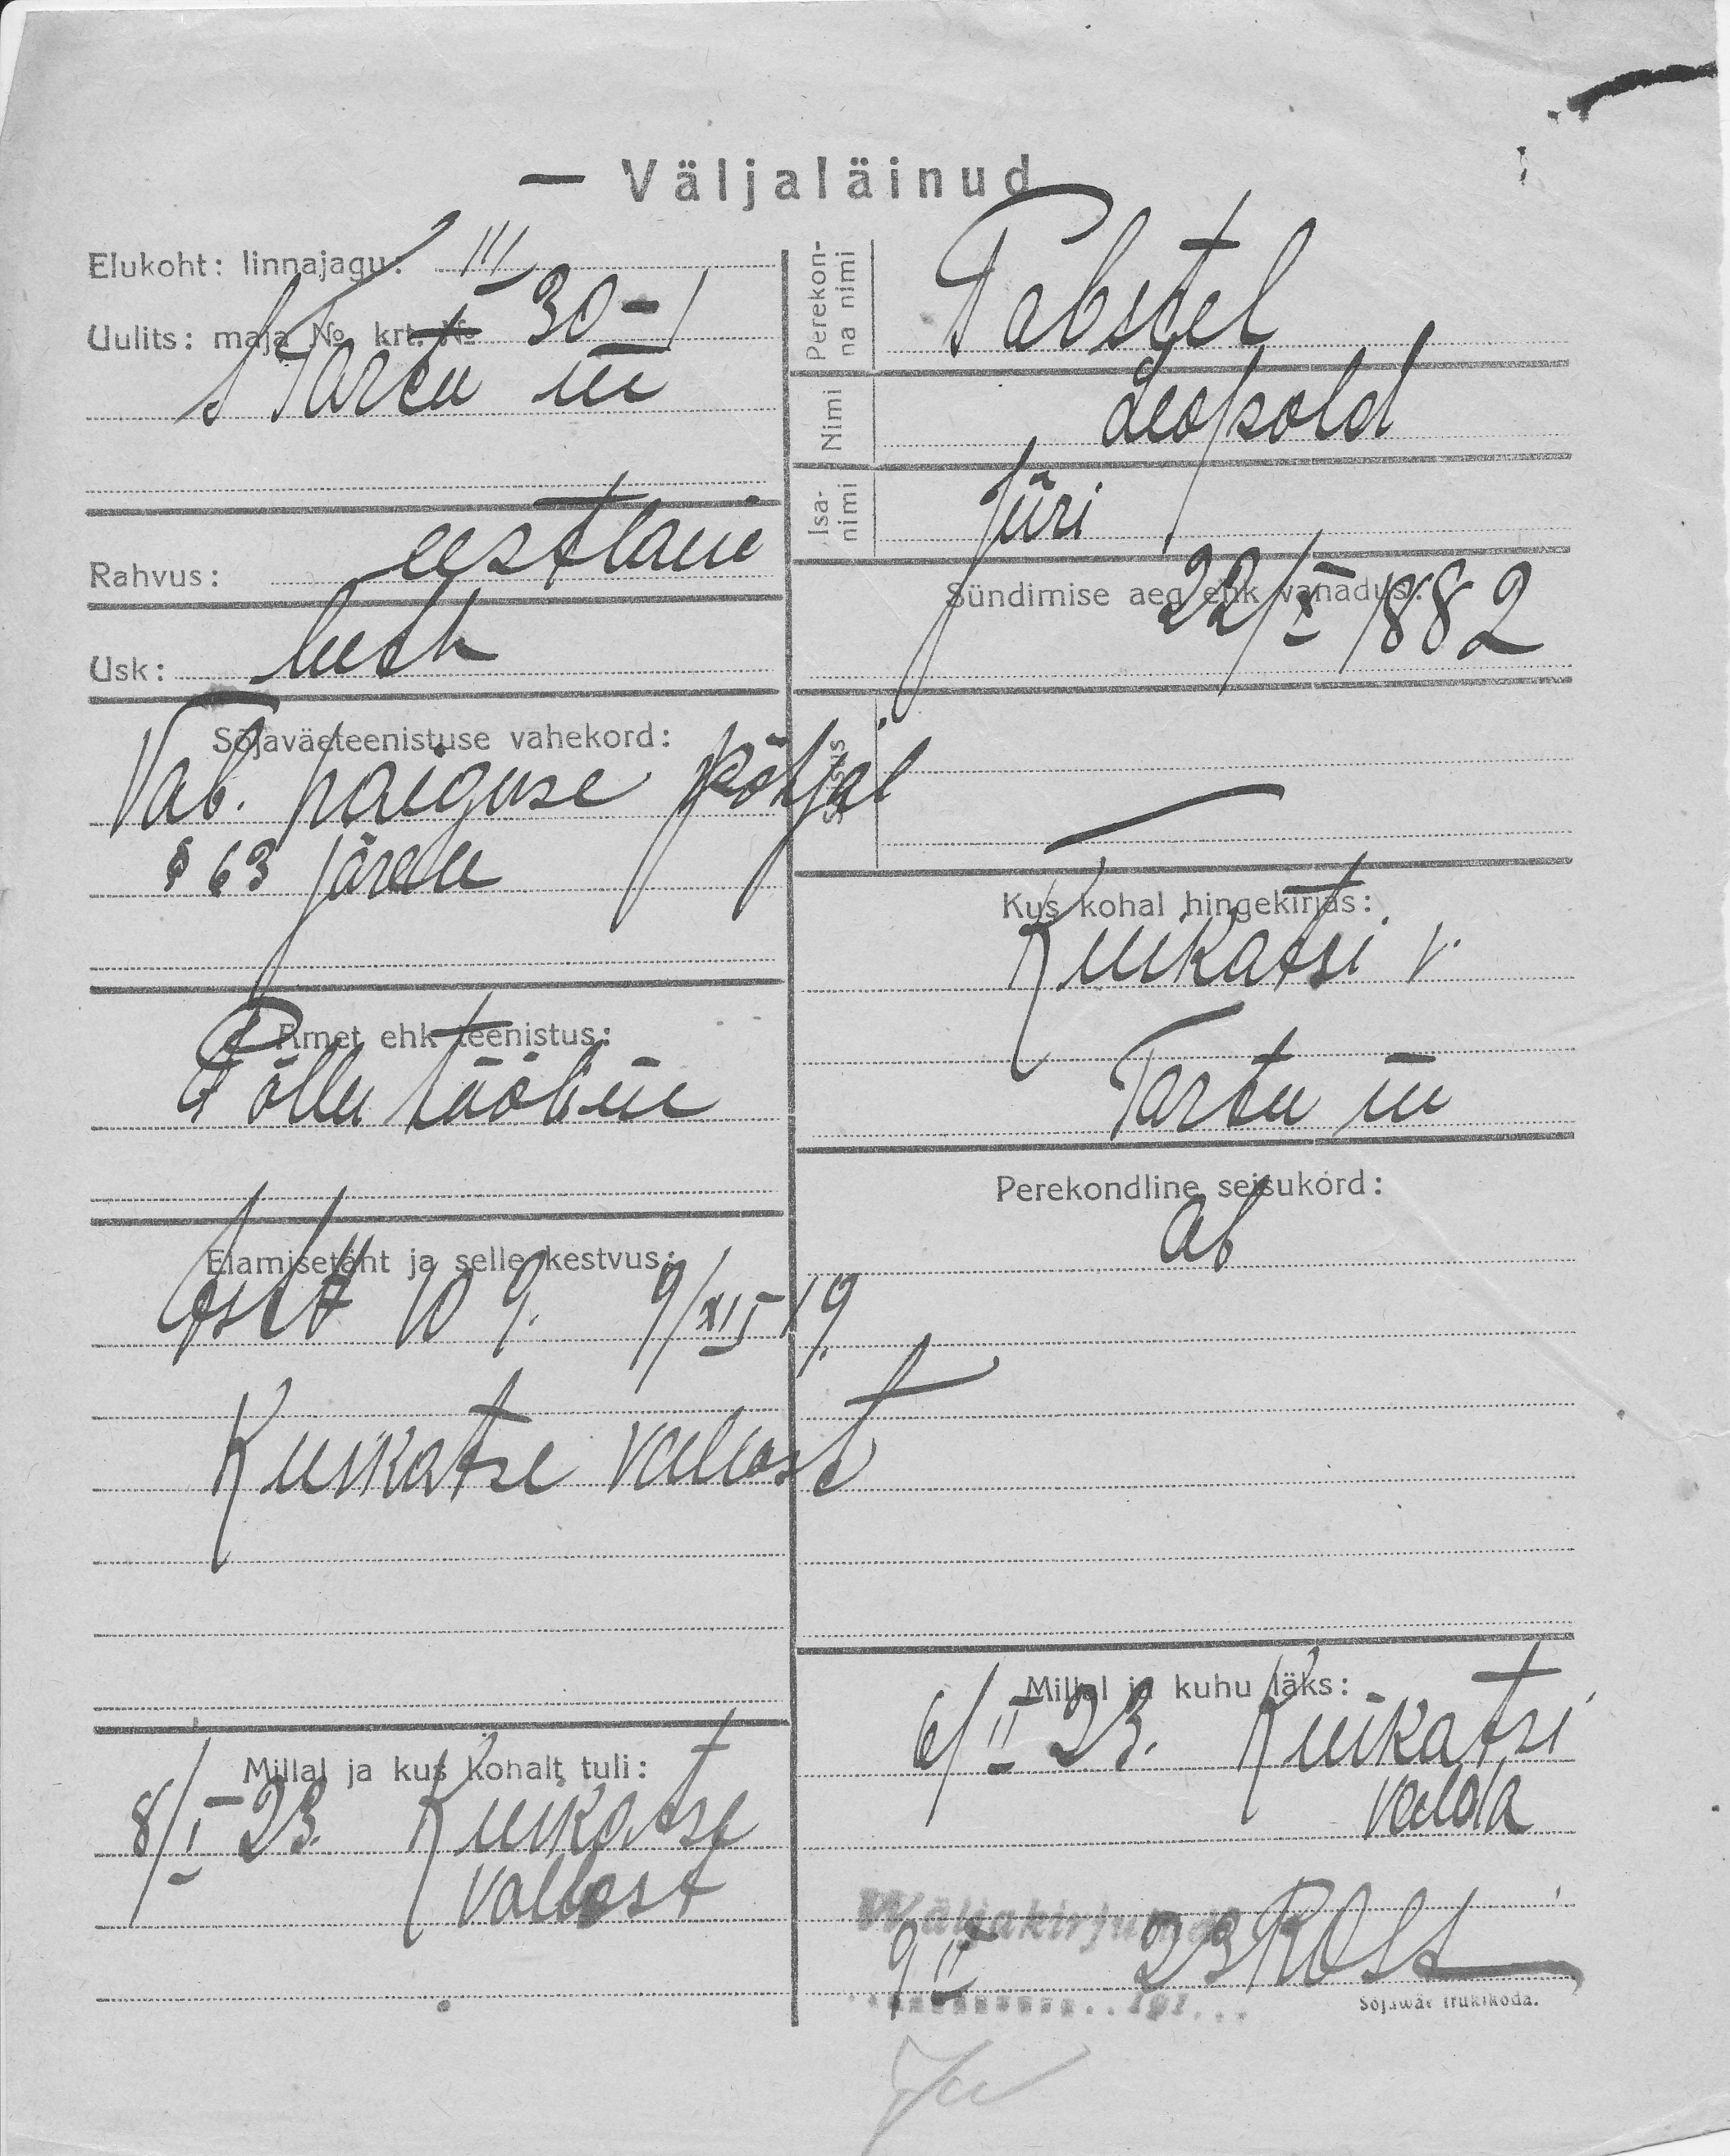 — Väljaläinud
Elukoht: linnajagu: III
Uulits: maja № krt. № 30-1
S Tartu m
Rahvus: eestlane
Usk: luth
Sõjaväeteenistuse vahekord:
Vab. haiguse põhjal
§ 63 järele
Amet ehk teenistus:
Põllu tööline
Elamisetäht ja selle kestvus:
10 9/XII 19
Kuikatse vallast
Millal ja kus kohalt tuli:
8/I 23. Kuikatse
vallast
Perekonna nimi Pabstel
Nimi Leopold
Isanimi Jüri
Sündimise aeg ehk vanadus:
22/X 1882
Seisus —
Kus kohal hingekirjas:
Kuikatsi v.
Tartu m
Perekondline seisukord:
ab
Millal ja kuhu läks:
6/II 23. Kuikatsi
valda
Wäljakirjutud
9 II 23 ROst
191...
Sõjawäe trükikoda.